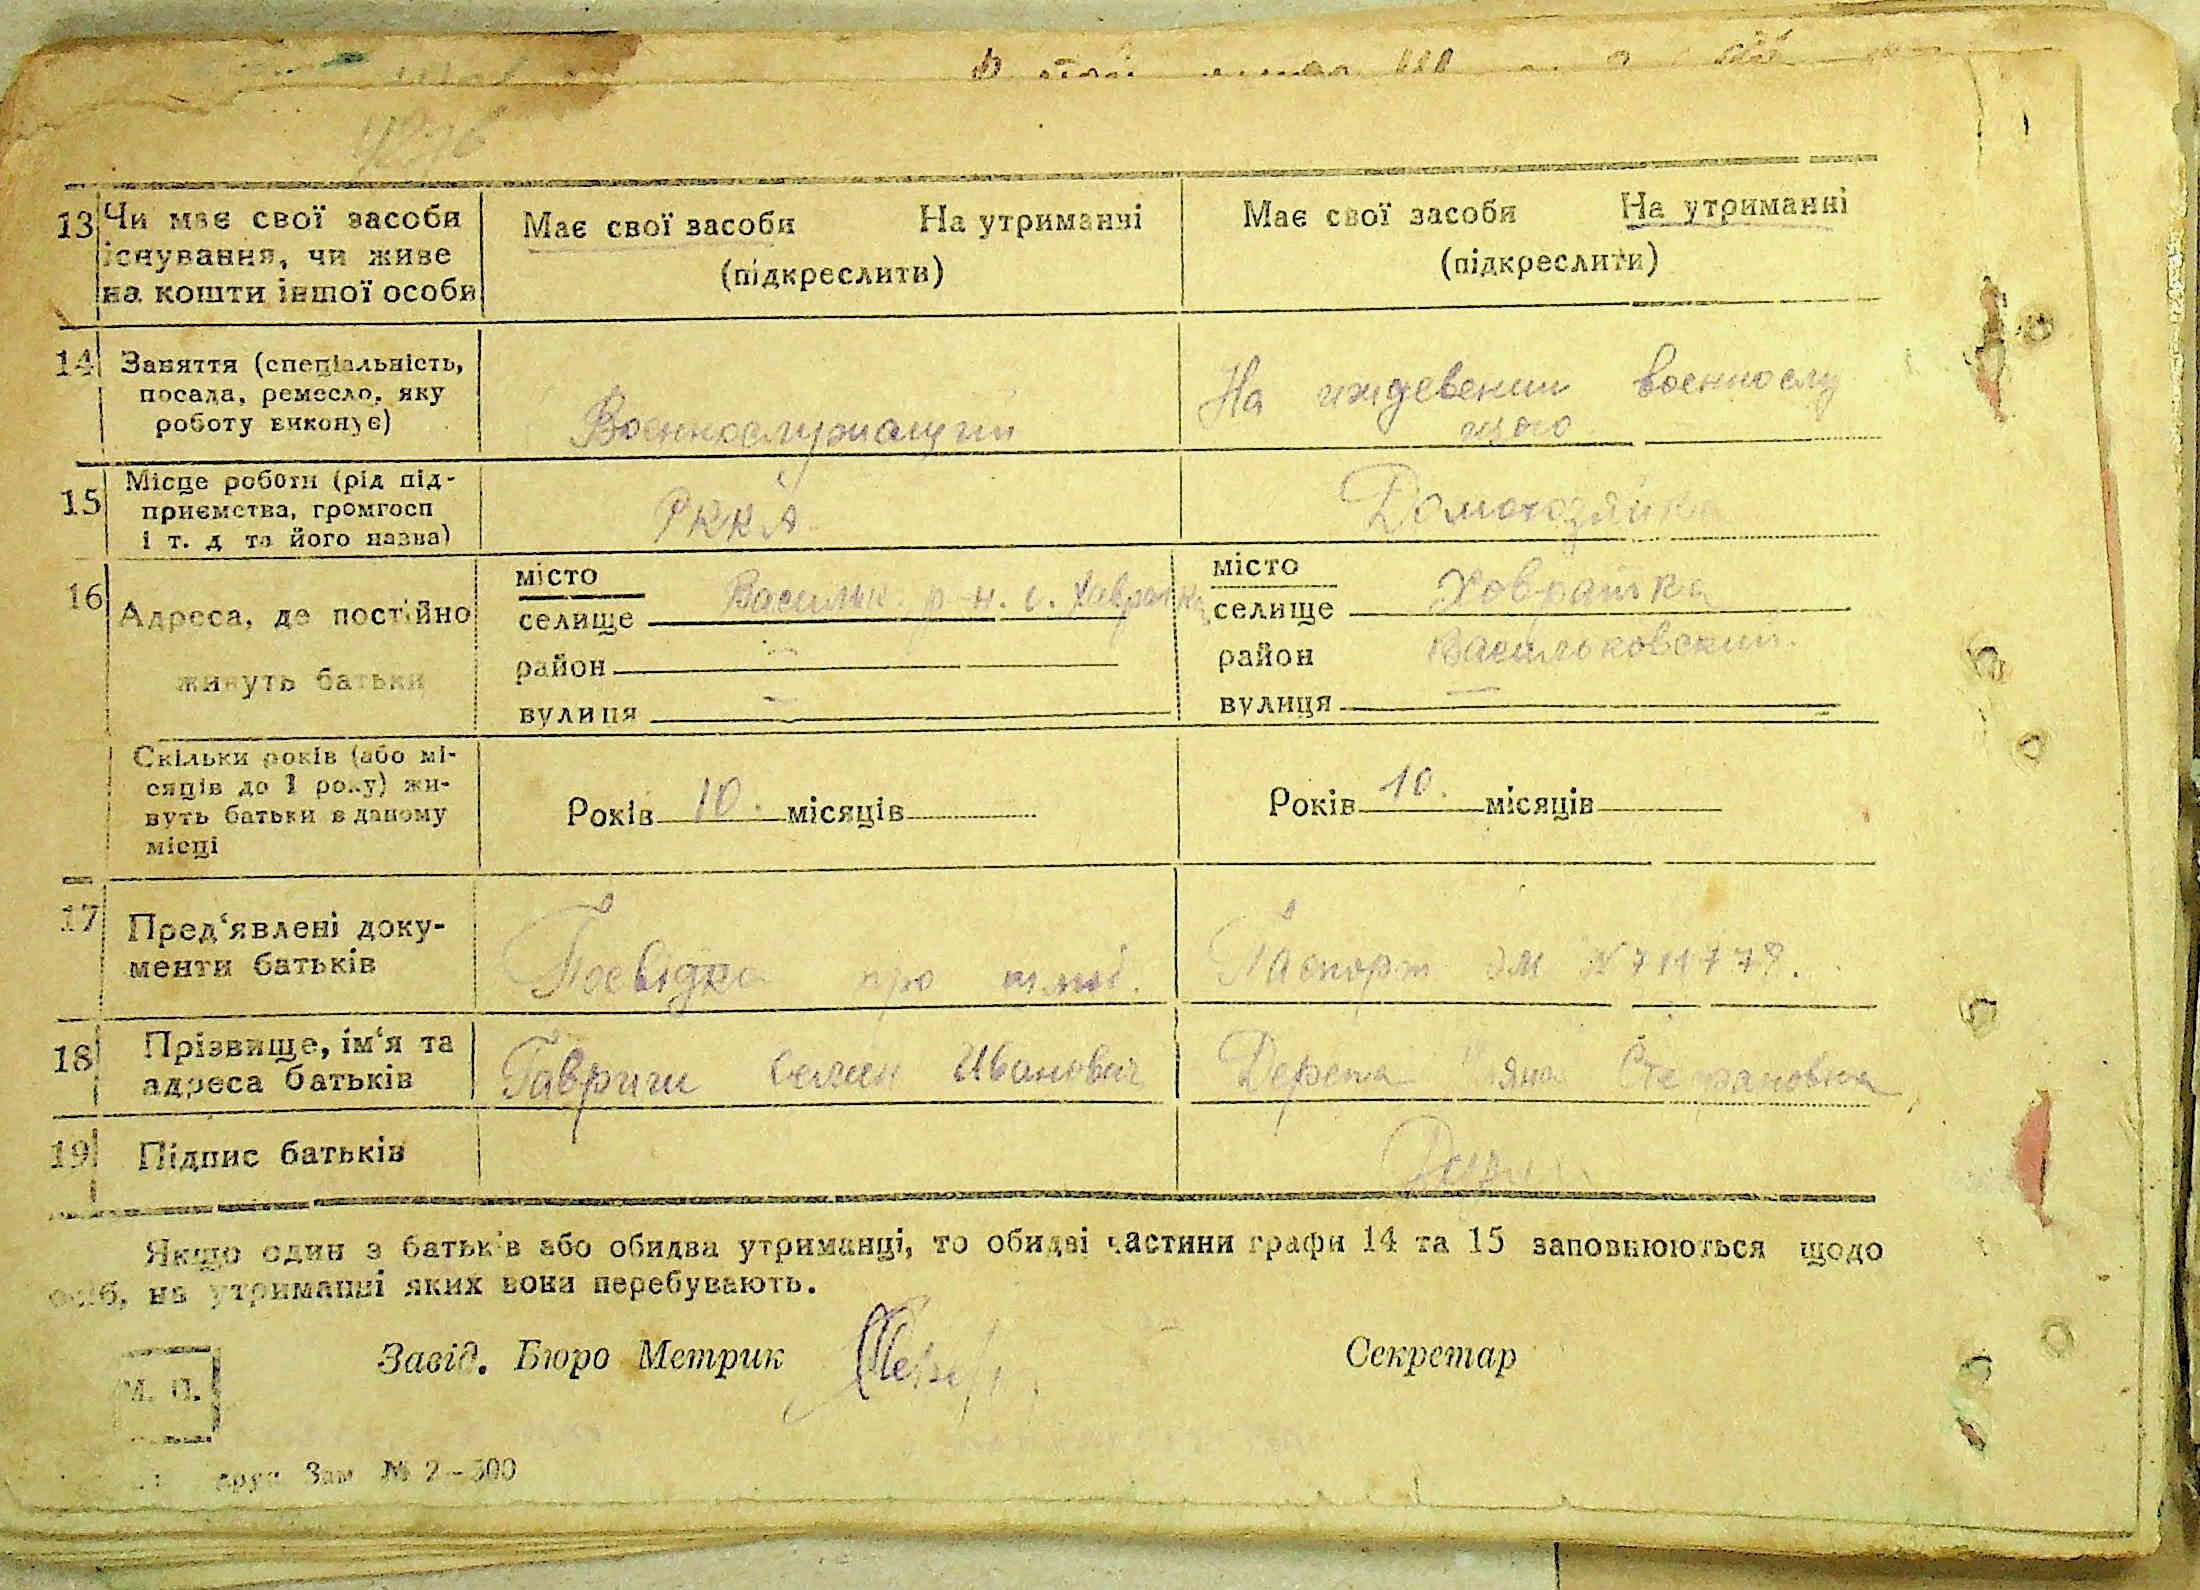 13 Чи має свої засоби існування, чи живе на кошти іншої особи
Має свої засоби На утриманні
(підкреслити)
Має свої засоби На утриманні
(підкреслити)
14 Заняття (спеціальність, посада, ремесло, яку роботу виконує)
Военнослужащий
На иждевении военнослу
щого
15 Місце роботи (рід підприємства, громгосп і т. д та його назва)
РККА
Домохозяйка
16 Адреса, де постійно живуть батьки
місто
селище Васильк. р-н. с. Хавратка
район —
вулиця —
місто
селище Ховратка
район Васильковский.
вулиця —
Скільки років (або місяців до 1 року) живуть батьки в даному місці
Років 10. місяців
Років 10. місяців
17 Пред'явлені документи батьків
Посвідка про
Паспорт ЭМ N 711779.
18 Прізвище, ім'я та адреса батьків
Гавриш Иванович
Дерепа Степановна
19 Підпис батьків
Якщо один з батьків або обидва утриманці, то обидві частини графи 14 та 15 заповнюються щодо
осіб, на утриманні яких вони перебувають.
М. П.
Завід. Бюро Метрик
Секретар
друк Зам № 2-500